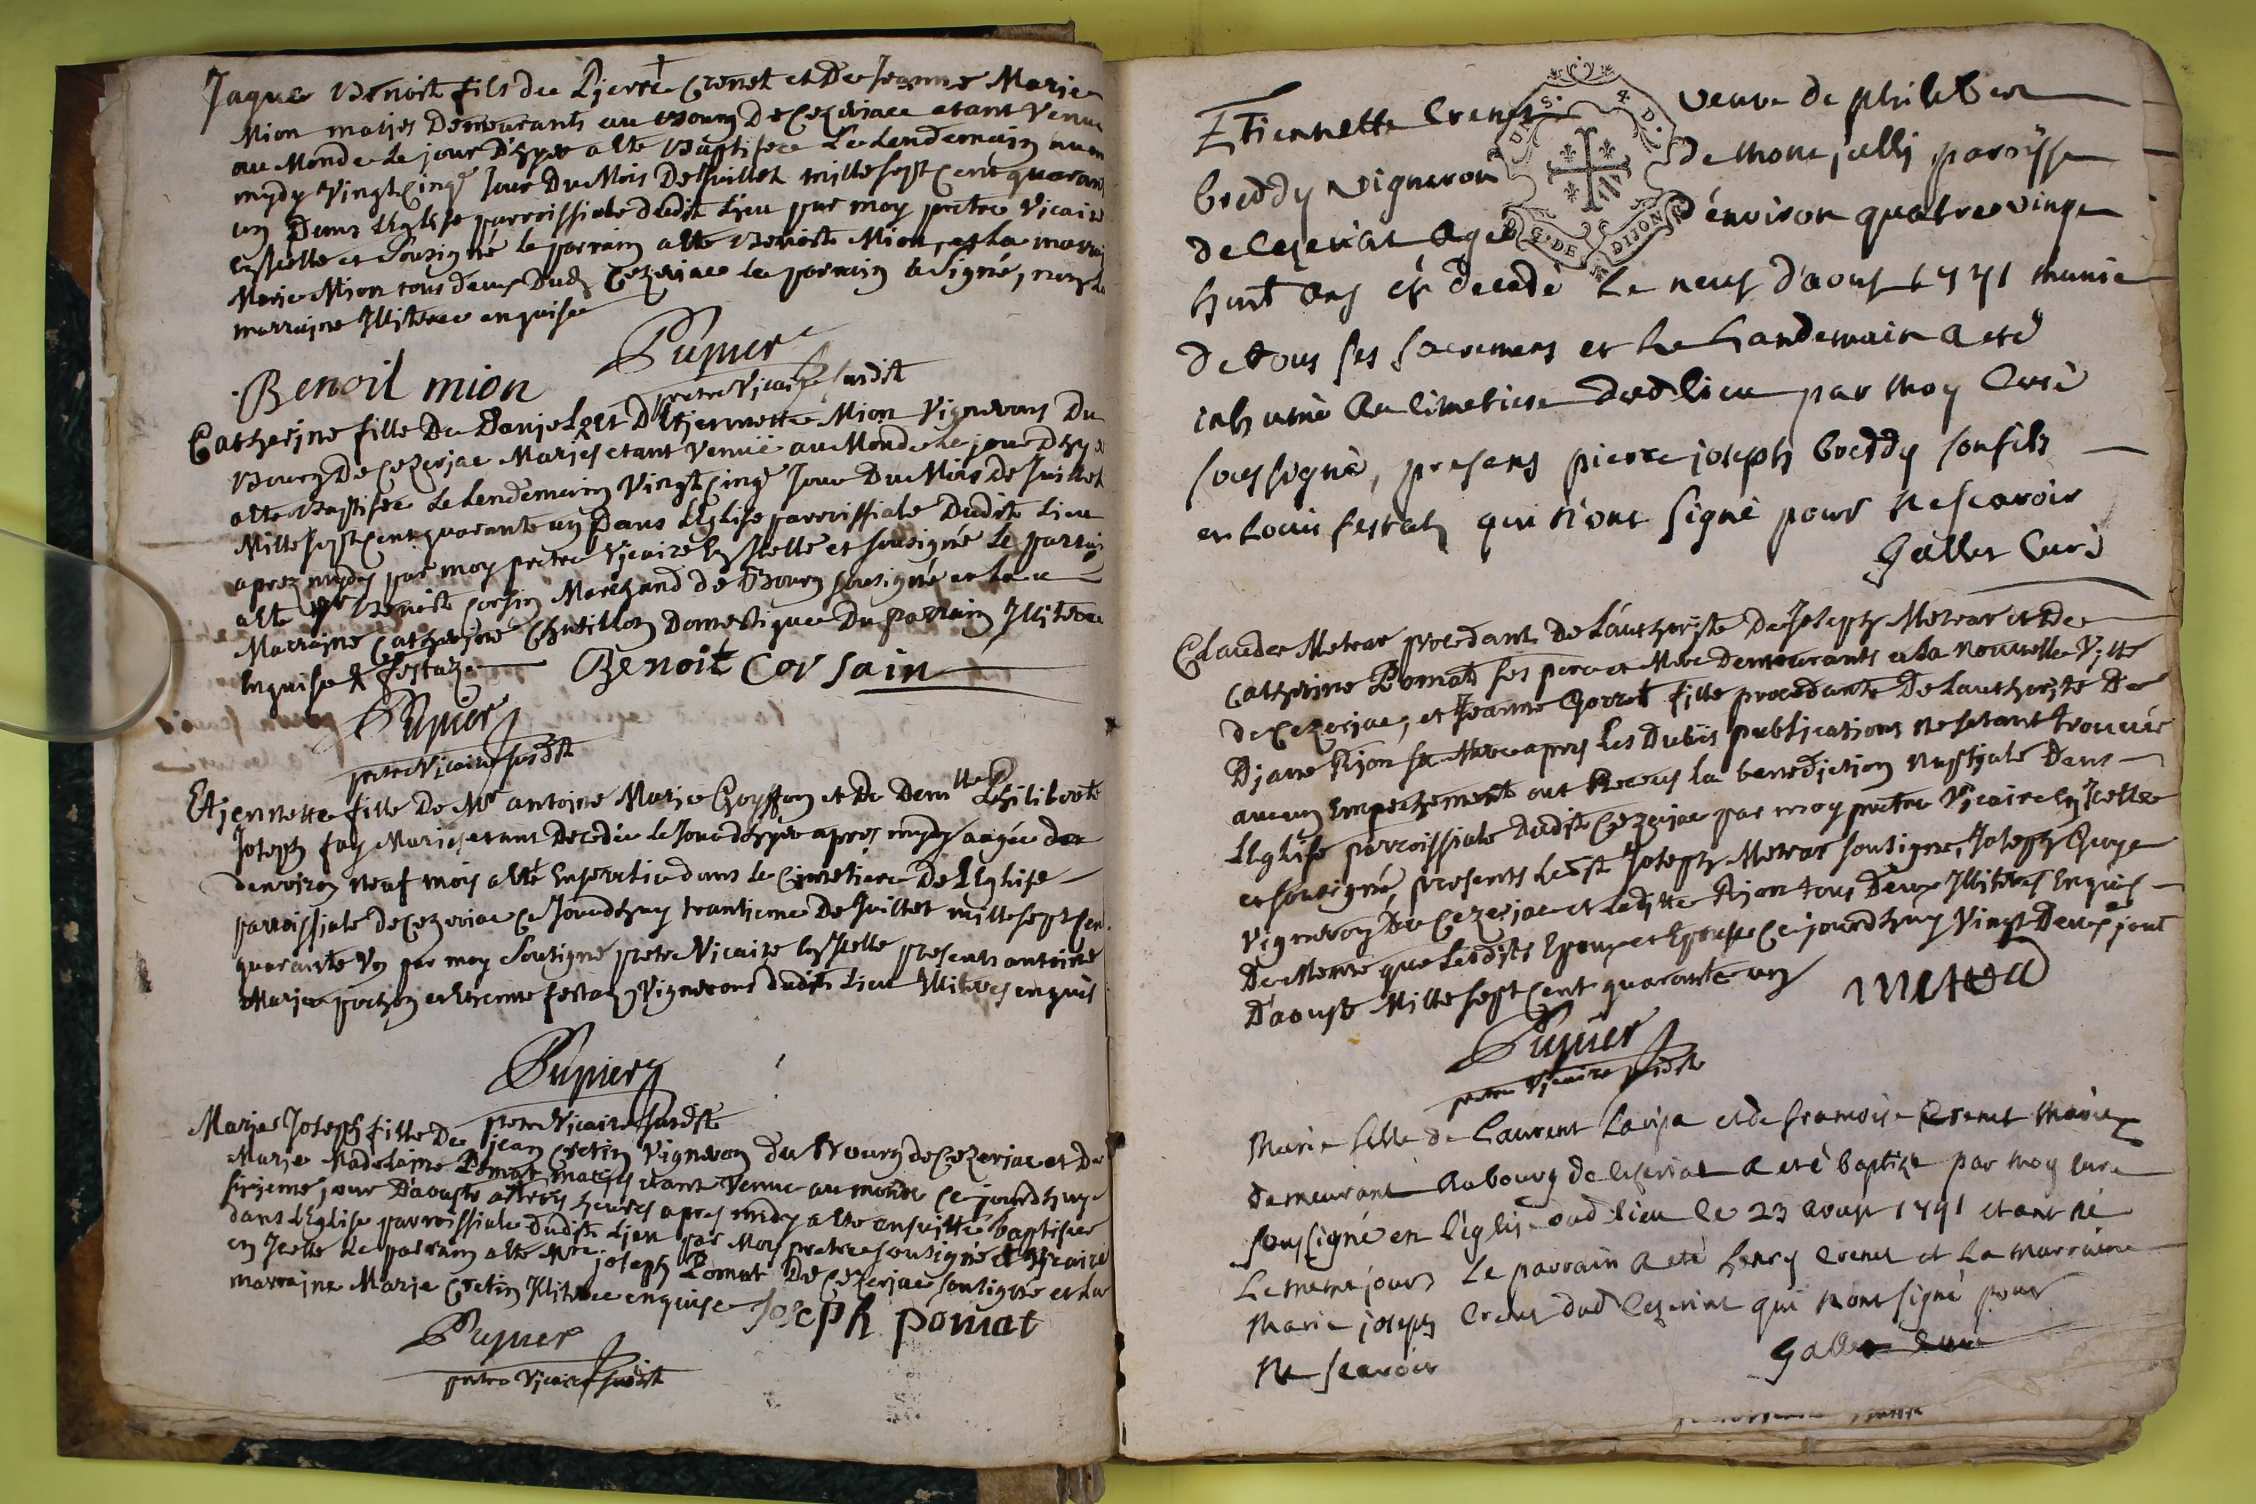 Jaque Benoit fils de Pierre Crenet et De Jeanne Marie
Mion mariés Demeurants au Bourg De Cezeriac etant Venu
au Monde le jour D'hyer a été Baptisée Le Lendemain avan
mydy Vingt Cinqe Jour Du Mois De Juillet mille sept cent quarant
un Dans L'Eglise parroissiale dudit Lieu par moy pretre Vicaire
en icelle et Sousigné le parrain a été Benoit Mion, et La marrai
Marie Mion tous deux Dudt Cezeriac le parrain a Signé, non La
marraine Illiterée enquise
Benoit mion
Pupier
pretre Vicaire susdit
Catherine fille De et D'Etjennette Mion Vignerons Du
Bourg De Cezerjac Mariés etant Venuë au Monde Le jour D'hyer
a été Baptisée Le Lendemain Vingt Cinqe Jour Du Mois de Juillet
Mille sept Cent quarante un Dans L'Eglise parroissiale Dudit Lieu
aprez mydy par moy pretre Vicaire en Icelle et sousigné Le parrai
a été Sr Benoit Corsin Marchand de Bourg sousigné et La
Marraine Catherine Chatillon Domestique Du parrain Illiterée
Enquise
Benoit Corsain
Pupier
pretre Vicaire susdit
Etjennette fille De Mr antoine Marie Goyffon et De Demlle Philiberte
Joseph fay Mariés etant Decedée le Jour d'hyer apres mydy aagée de
d'environ neuf mois a été Ensevelie dans le Cimetiere De L'Eglise
parroissiale De Cezeriac Ce Jourd'huy trantieme De Juillet mille sept cen
quarante Un par moy Sousigné pretre Vicaire en Icelle presents antoine
Marie pochon et Etienne festaz Vignerons dudit Lieu Illiterés enquis
Pupier
pretre Vicaire susdit
Marie Joseph fille De jean Cretin Vigneron du Bourg de Cezeriac et De
Marie Madelaine Pomat mariés etant Venue au monde Ce jourd'huy
sixieme jour D'aouste a trois heures apres mydy a été ensuitte baptisée
dans L'Eglise parroissiale dudit Lieu par Moy pretre sousigné et Vicaire
en Icelle Le parrain a été Mre joseph Pomat De Cezeriac sousigné et La
marraine Marie Cretin Illiterée enquise
Joseph pomat
Pupier
pretre Vicaire susdit
G. DE DIJON
Etiennette Crenet veuve de philiber
breddy vigneron de montjulli paroisse
de Ceseriat agée d'environ quatre vingt
huit ans est decedé le neuf d'aoust 1741 munie
de tous ses sacremens et le Landemain a eté
inhumé au cimetiere dud lieu par moy Curé
soussigné, presens pierre joseph breddy son fils
et Louis festaz qui n'ont signé pour ne scavoir
Gallet Curé
Claude Metrar procedant De L'authorité De Joseph Metrar et De
Catherine Pomat ses pere et Mere Demeurants a La nouvelle Ville
de Cezeriac, et Jeanne Gorret fille procedante De L'authorité De
Djane Rjon sa Mere apres Les Duües publications ne setant trouvée
aucun Empechement ont Recus la benediction nuptiale Dans
L'Eglise parroissiale dudit Cezeriac par moy pretre Vicaire en Icelle
et sousigné, presents Led. Joseph Metrar sousigné, Joseph
Vigneron De Cezerjac et Laditte Rjon tous Deux Illiterés Enquis
De Meme que Lesdits Epoux et Epouse Ce jourd'huy Vingt Deuxe jour
D'aouste Mille sept Cent quarante un
Metra
Pupier
pretre Vicaire susdit
Marie fille de Laurent et de francoise Crenet mariez
demeurant au bourg de Ceseriat a eté baptize par moy curé
soussigné en l'eglise dud lieu le 23 aoust 1741 etant né
Le meme jour, Le parrain a eté henry Crenet et La marraine
Marie joseph Crenet dud Ceseriat qui n'ont signé pour
ne scavoir
Gallet Curé